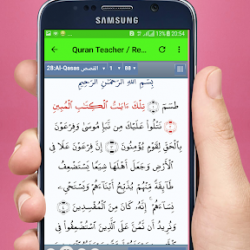 SAMSUNG
20:54
Quran Teacher / Re...
28:Al-Qasas القصص
بِسْمِ اللَّهِ الرَّحْمَٰنِ الرَّحِيمِ
طسٓمٓ ۝ تِلْكَ ءَايَٰتُ ٱلْكِتَٰبِ ٱلْمُبِينِ
نَتْلُوا۟ عَلَيْكَ مِن نَّبَإِ مُوسَىٰ وَفِرْعَوْنَ
عَلَا فِى
ٱلْأَرْضِ وَجَعَلَ أَهْلَهَا شِيَعًا يَسْتَضْعِفُ
طَآئِفَةً مِّنْهُمْ يُذَبِّحُ أَبْنَآءَهُمْ وَيَسْتَحْىِۦ
نِسَآءَهُمْ إِنَّهُۥ كَانَ مِنَ ٱلْمُفْسِدِينَ
وَنُرِيدُ أَن نَّمُنَّ عَلَى ٱلَّذِينَ ٱسْتُضْعِفُوا۟